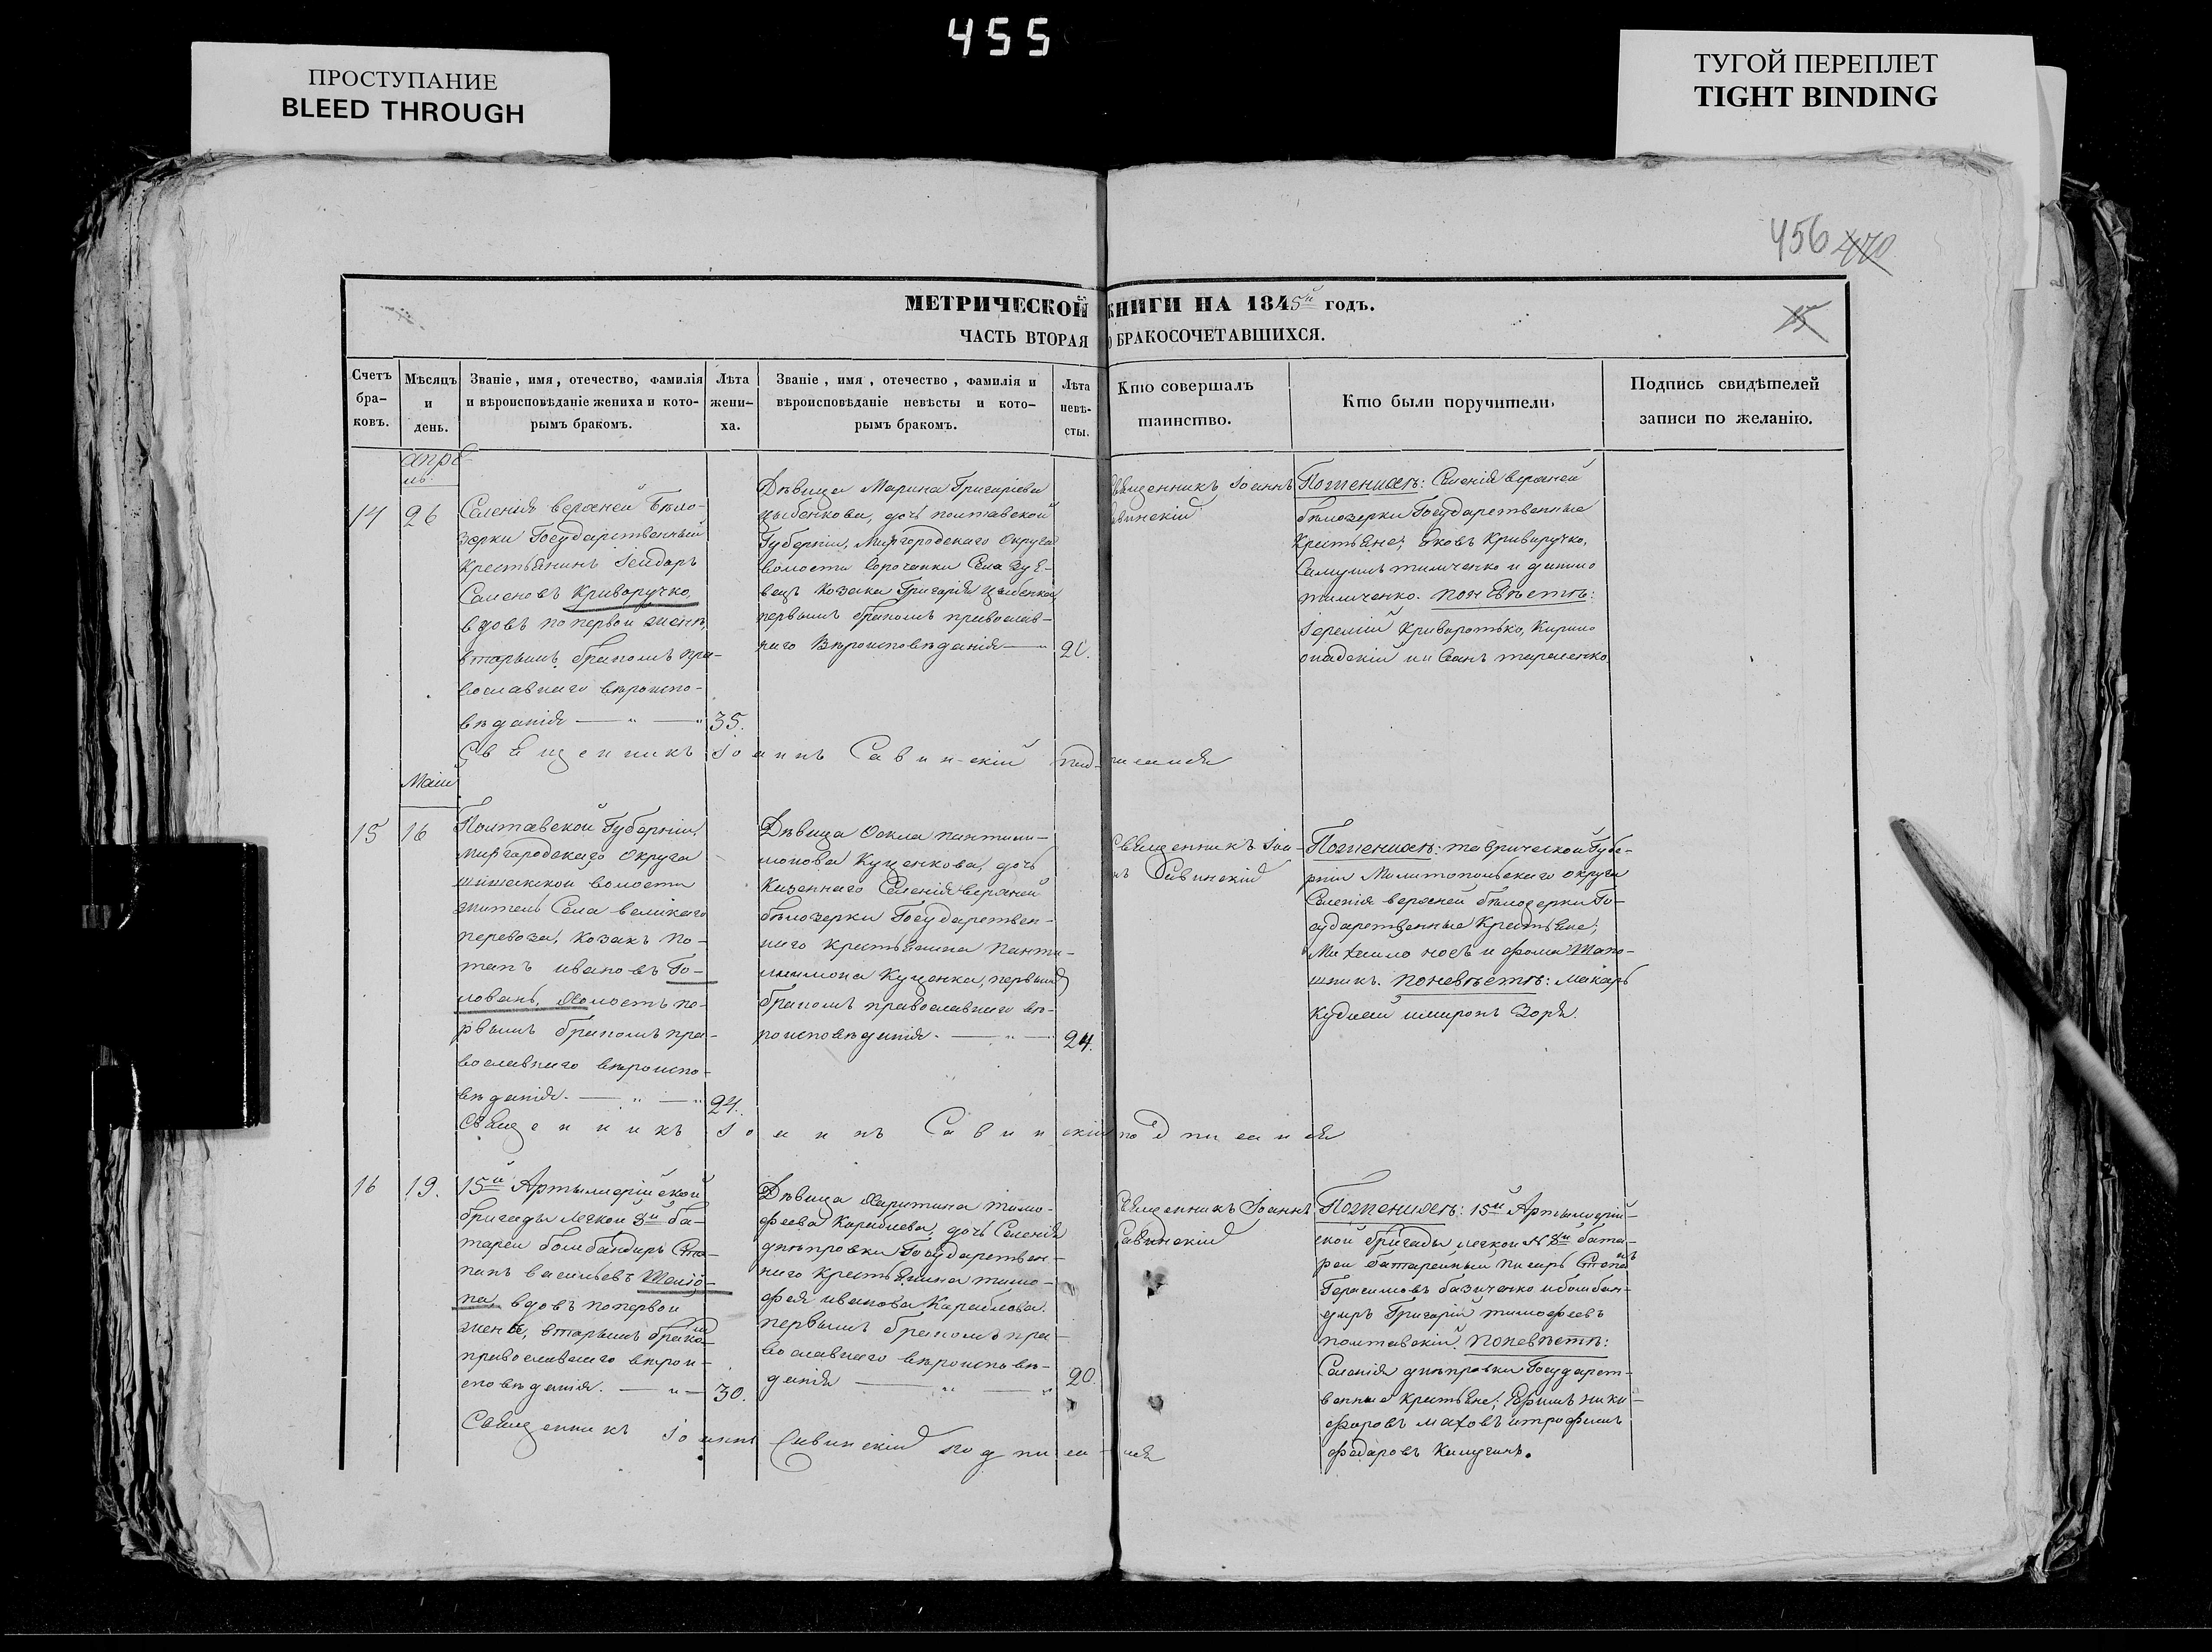 455
ПРОСТУПАНИЕ
BLEED THROUGH
ТУГОЙ ПЕРЕПЛЕТ
TIGHT BINDING
456 470
МЕТРИЧЕСКОЙ КНИГИ НА 1845й годъ.
ЧАСТЬ ВТОРАЯ О БРАКОСОЧЕТАВШИХСЯ.
15
Счетъ бра-
ковъ.
Мѣсяцъ
и
день.
Званіе, имя, отечество, фамилія
и вѣроисповѣданіе жениха и кото-
рымъ бракомъ.
Лѣта
жени-
ха.
Званіе, имя, отечество, фамилія и
вѣроисповѣданіе невѣсты и кото-
рымъ бракомъ.
Лѣта
невѣ-
сты.
Кто совершалъ
таинство.
Кто были поручители.
Подпись свидѣтелей
записи по желанію.
апрѣ-
ль.
14
26
Селенія верхней Бѣло-
зерки Государственный
Крестьянинъ Ісидоръ
Саменовъ Криворучко,
вдовъ по первой женѣ,
вторымъ бракомъ пра-
вославнаго вѣроиспо-
вѣданія — „ — „
35.
Дѣвица Марина Григоріева
Цыбенкова, дочь полтавской
Губерніи, Миргородскаго Округа
волости Сорочанки Села Зуе-
вецъ Козака Григорія Цыбенка
первымъ бракомъ православ-
наго Вѣроисповѣданія — „
21.
Священникъ Іоаннъ
Савинскій
По женихѣ: Селенія верхней
бѣлозерки Государственные
Крестьяне; Яковъ Криворучко,
Самуилъ тимченко и данило
тимченко. по невѣстѣ:
Іеремій Криворотько, Кирило
опадскій и иванъ тараненко
Священникъ Іоаннъ Савинскій подписался
Маій
15
16
Полтавской Губерніи,
Миргородскаго Округа
шишакской волости
житель Села великаго
перевоза, козакъ По-
тапъ ивановъ Го-
ловань, холостъ пе-
рвымъ бракомъ пра-
вославнаго вѣроиспо-
вѣданія. — „ — „
24.
Дѣвица Фекла пантили-
монова Куценкова, дочь
Казеннаго Селенія верхней
бѣлозерки Государствен-
наго крестьянина Панти-
лимона Куценка, первымъ
бракомъ православнаго вѣ-
роисповѣданія. — „ —
24.
Священникъ Іоа-
нъ Савинскій
По женихѣ: таврической Губе-
рніи Мелитопольскаго округа
Селенія верхней бѣлозерки Го-
сударственные Крестьяне;
Михаило носъ и фома Шапо-
шникъ. по невѣстѣ: макаръ
Кудлай и миронъ Зоря.
Священникъ Іоаннъ Савинскій подписался
16
19.
15й Артыллерійской
бригады легкой 8й ба-
тареи бомбандиръ Сте-
панъ васильевъ
вдовъ по первой
женѣ, вторымъ бракомъ
православнаго вѣрои-
сповѣданія. — „ —
30.
Дѣвица Харитина тимо-
феева Кораблева, дочь Селенія
днѣпровки Государствен-
наго Крестьянина тимо-
фея иванова Караблова.
первымъ бракомъ пра-
вославнаго вѣроисповѣ-
данія — „ — „
20.
Священникъ Іоаннъ
Савинскій
По женихѣ: 15й Артыллерій-
ской бригады легкой № 8й бата-
реи батарейный писарь Степанъ
Герасимовъ базиченко и бомбан-
диръ Григорій тимофеевъ
полтавскій. по невѣстѣ:
Селенія днѣпровки Государст-
венные крестьяне; Ефимъ ники-
форовъ маховъ и трофимъ
федаровъ Калугинъ.
Священникъ Іоаннъ Савинскій подписался